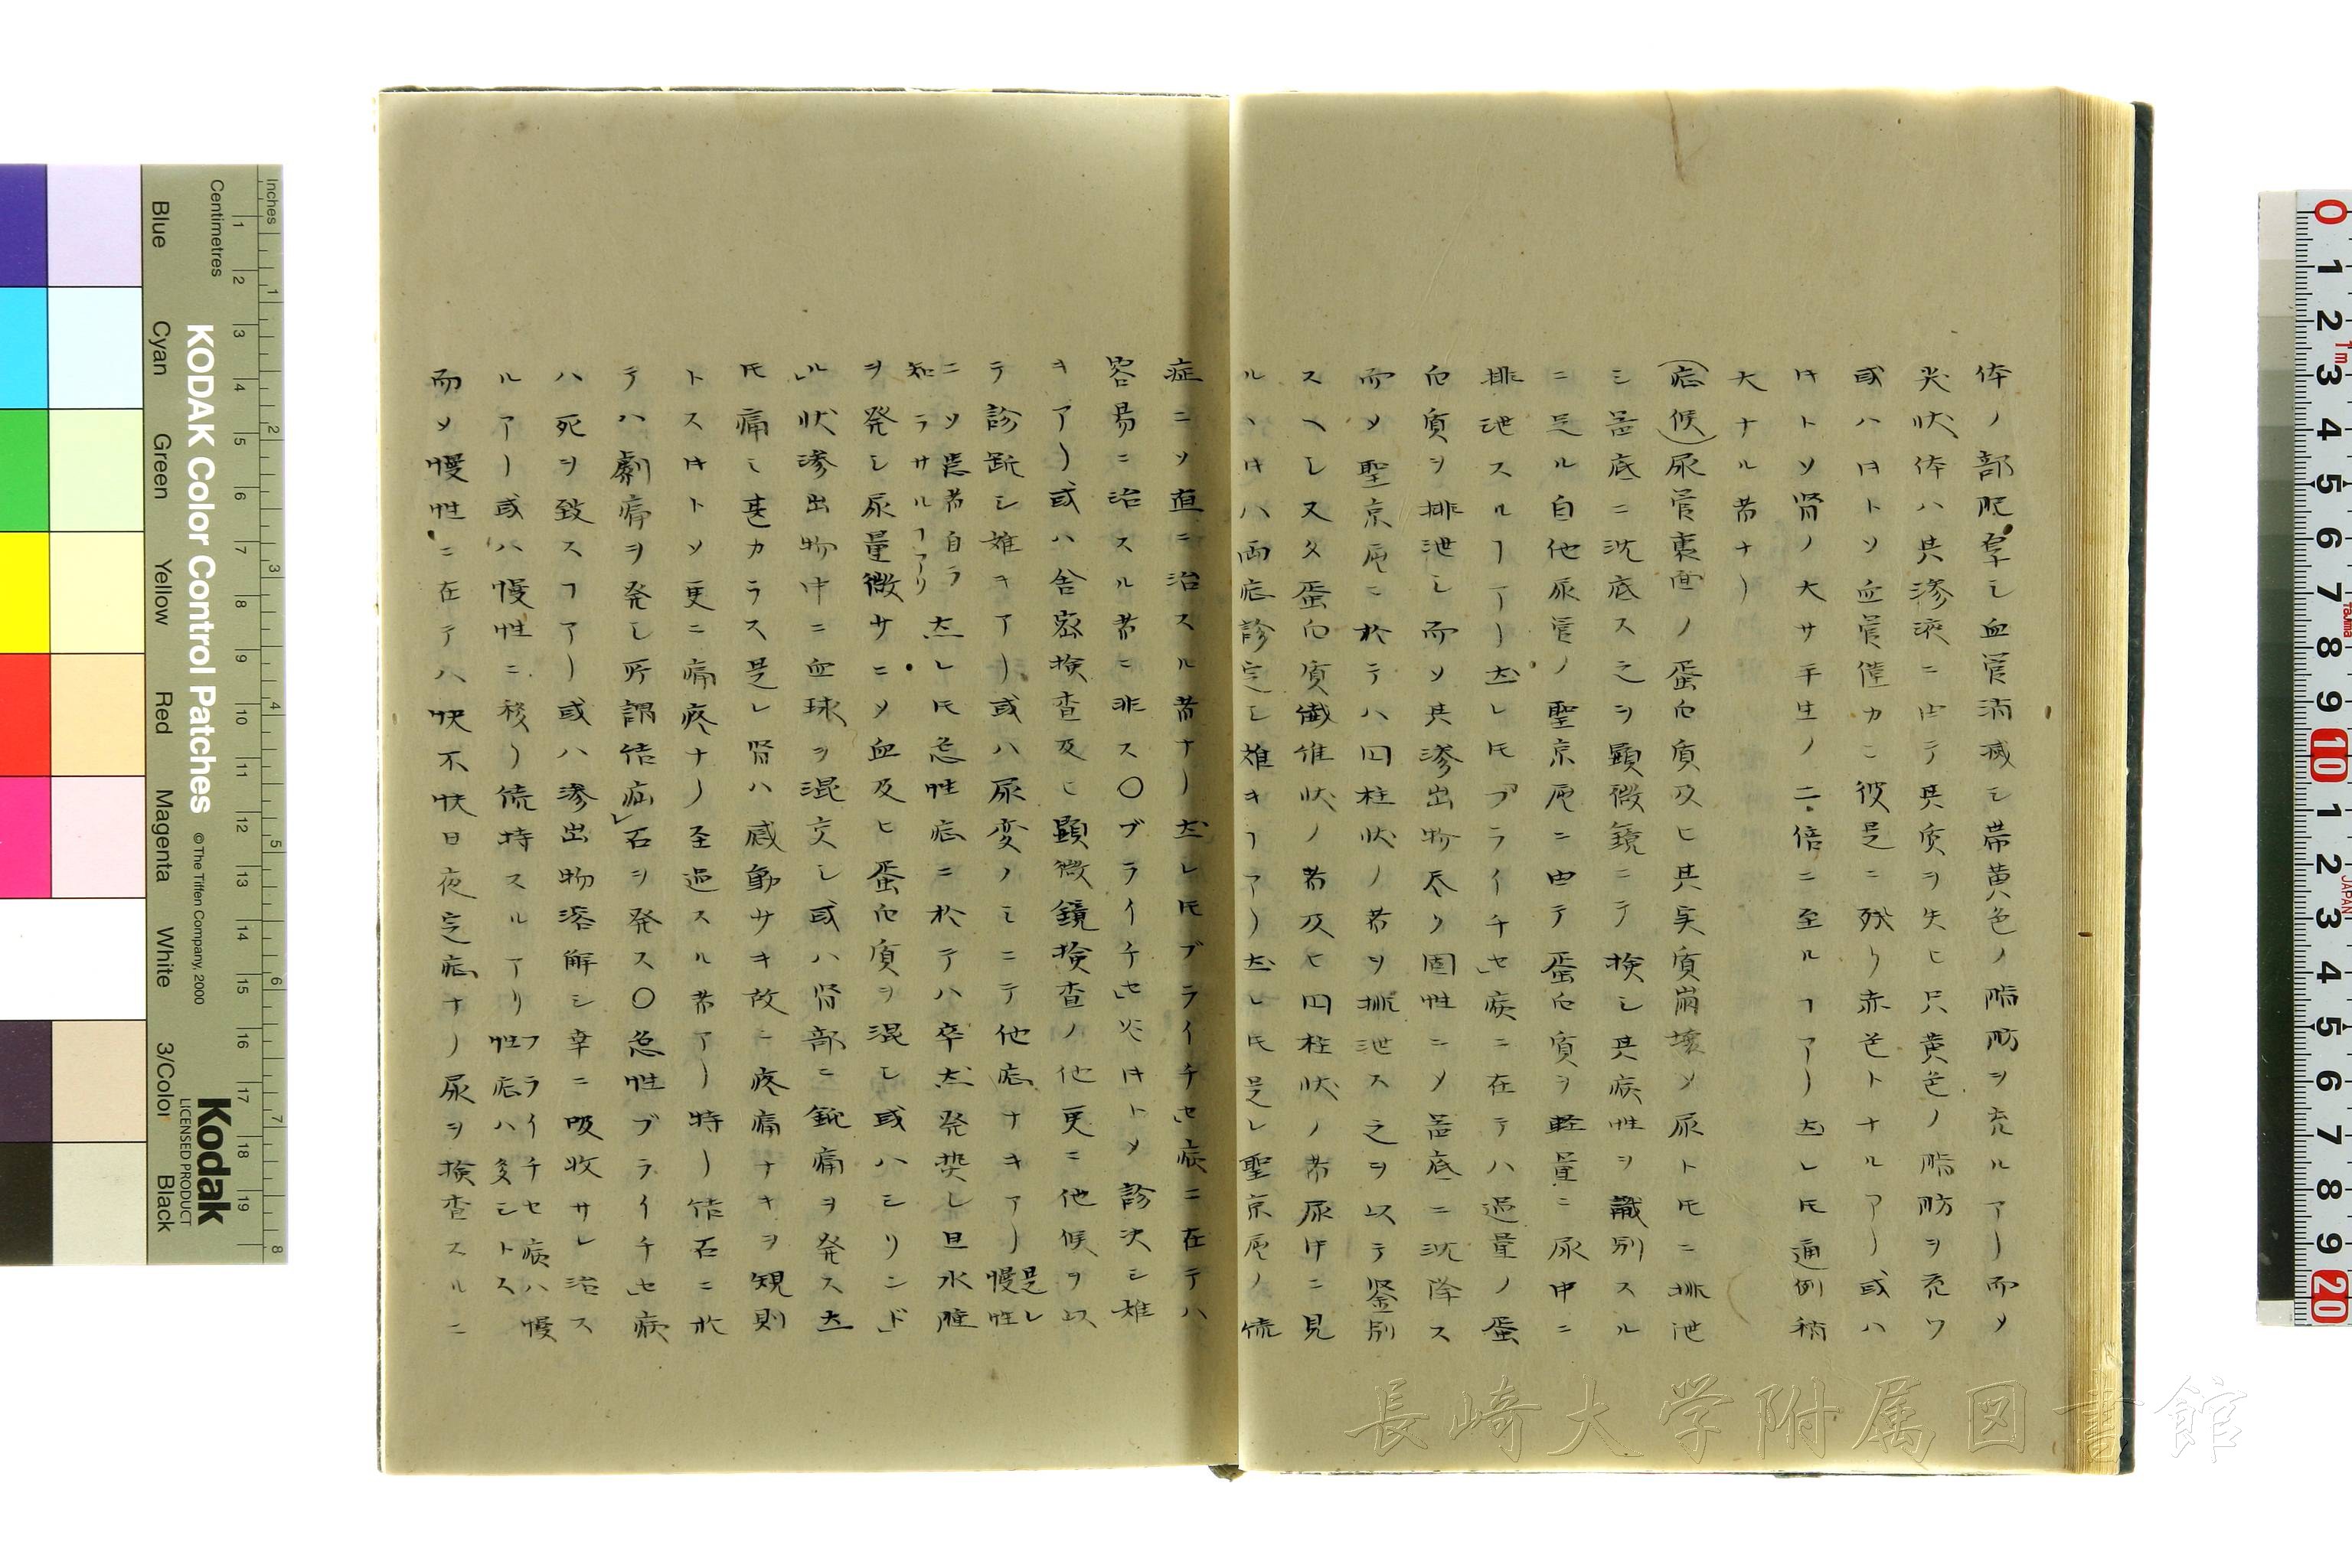 体ノ部脱挙シ血管消滅シ帯黄色ノ脂肪ヲ充ルアリ而メ
尖状体ハ其滲液ニ由テ其質ヲ失ヒ只黄色ノ脂肪ヲ充ワ
或ハ时トソ血管僅カニ彼是ニ残リ赤色トナルアリ或ハ
时トソ腎ノ大サ平生ノ二倍ニ至ルヿアリ𪜈レ𪜈通例稍
大ナル者ナリ
(症候)尿管裏面ノ蛋白質及ヒ其実質崩壊ソ尿ト𪜈ニ排泄
シ器底ニ沈底ス之ヲ顕微鏡ニテ検シ其病性ヲ識別スル
ニ足ル自他尿管ノ聖京尾ニ由テ蛋白質ヲ軽量ニ尿中ニ
排泄スルヿアリ然レ𪜈「ブライチセ」病ニ在テハ過量ノ蛋
白質ヲ排泄シ而ソ其滲出物尽ク固性ニメ器底ニ沈降ス
而ソ聖京尾ニ於テハ円柱状ノ者ヲ排泄ス之ヲ以テ鑒別
スヘシ又タ蛋白質繊維状ノ者及ヒ円柱状ノ者尿中ニ見
ルヽ时ハ両症診定シ難キヿアリ然レ𪜈是レ聖京尾ノ傷
症ニソ直ニ治スル者ナリ然レ𪜈ブライチセ」病ニ在テハ
容易ニ治スル者ニ非ス〇ブライチセ」炎时トメ診決シ難
キアリ或ハ舎密検査及ヒ顕微鏡検査ノ他更ニ他候ヲ以
テ診断シ難キアリ或ハ尿変ノミニテ他症ナキアリ是レ慢性
ニソ患者自ラ知ラサルヿアリ然レ𪜈急性症ニ於テハ卒然発熱シ且水腫
ヲ発シ尿量微サニメ血及ヒ蛋白質ヲ混シ或ハシリンド」
ル」状滲出物中ニ血球ヲ混交シ或ハ腎部ニ鈍痛ヲ発ス然
𪜈痛ミ甚カラス是レ腎ハ感動サキ故ニ疼痛ナキヲ規則
トス时トソ更ニ痛疼ナリ至過スル者アリ特リ結石ニ於
テハ劇痛ヲ発シ所謂結疝」石ヲ発ス〇急性ブライチセ」病
ハ死ヲ致スヿアリ或ハ滲出物溶解シ幸ニ吸收サレ治ス
ルアリ或ハ慢性ニ移リ続持スルアリ ブライチセ病ハ慢性症ハ多シトス
而ソ慢性ニ在テハ快不快日夜定症ナリ尿ヲ検査スルニ
長崎大学附属図書館
Inches
Centimetres
KODAK Color Control Patches
© The Tiffen Company, 2000
Kodak
LICENSED PRODUCT
Blue
Cyan
Green
Yellow
Red
Magenta
White
3/Color
Black